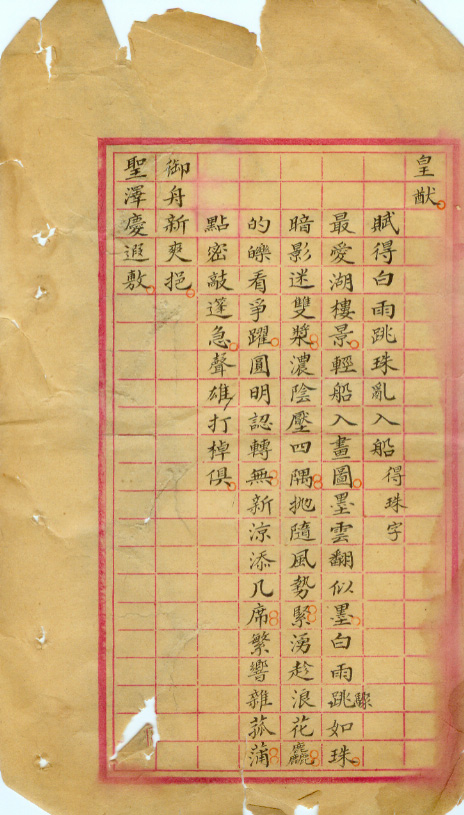 皇猷
賦得白雨跳珠亂入船得珠字
最愛湖樓景輕船入畫圖墨雲翻似墨白雨跳驟如珠
暗影迷雙槳濃陰壓四隅拋隨風勢緊湧趁浪花麤
的皪看爭躍圓明認轉無新涼添几席繁響雜菰蒲
點密敲蓬急聲雄打棹俱
御舟新爽挹
聖澤慶遐敷